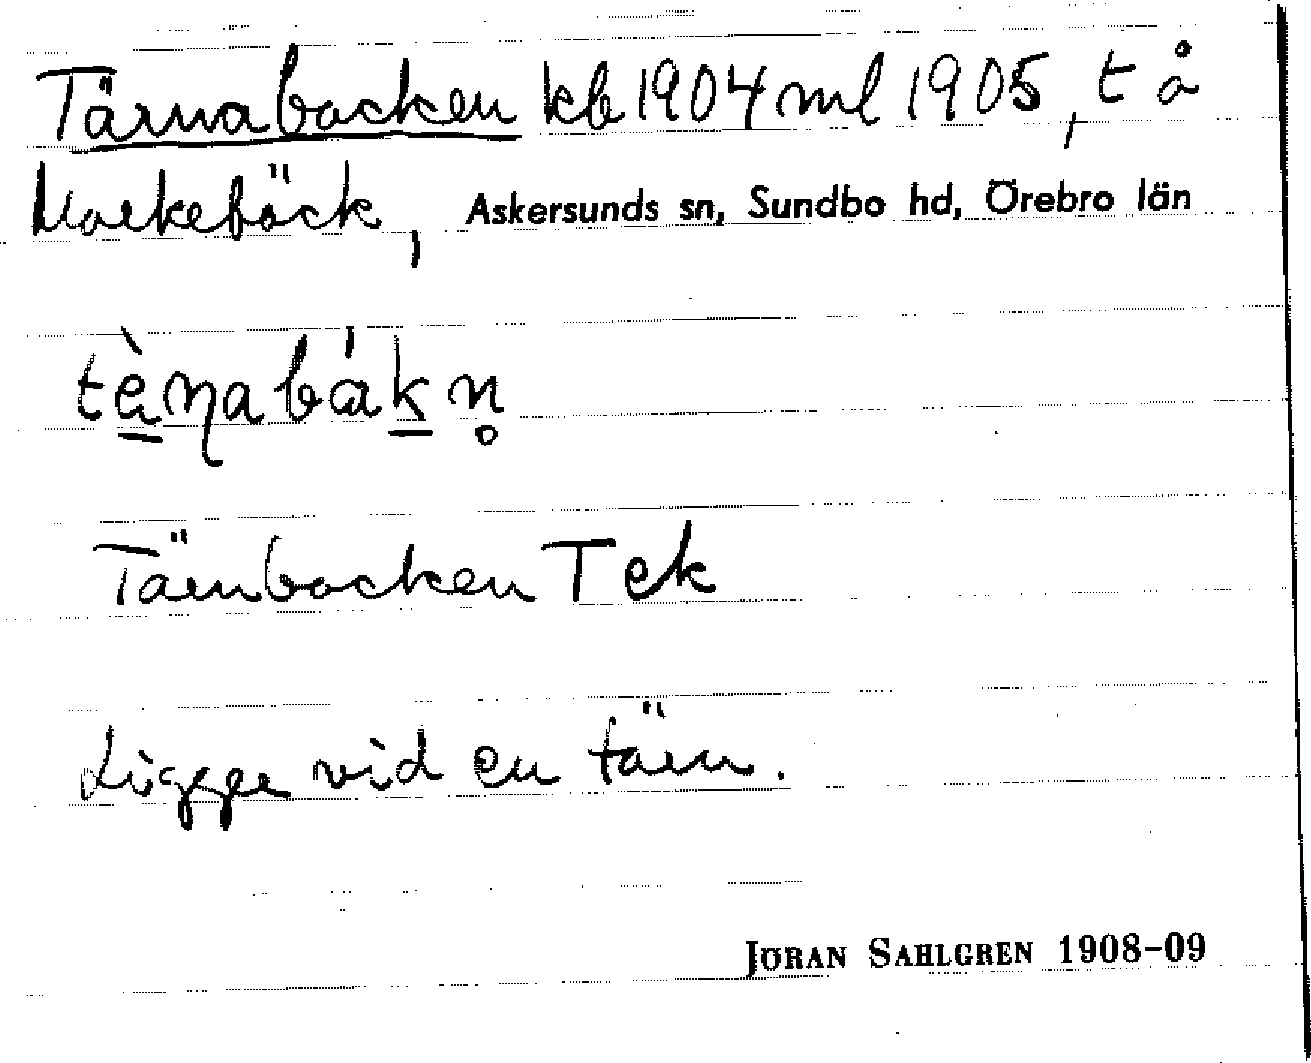 Tärnabacken kb 1904 ml 1905, t å
Markebäck, Askersunds sn, Sundbo hd, Örebro län
Tärnbacken T ek
Ligger vid en tärn.
JÖRAN SAHLGREN 1908-09